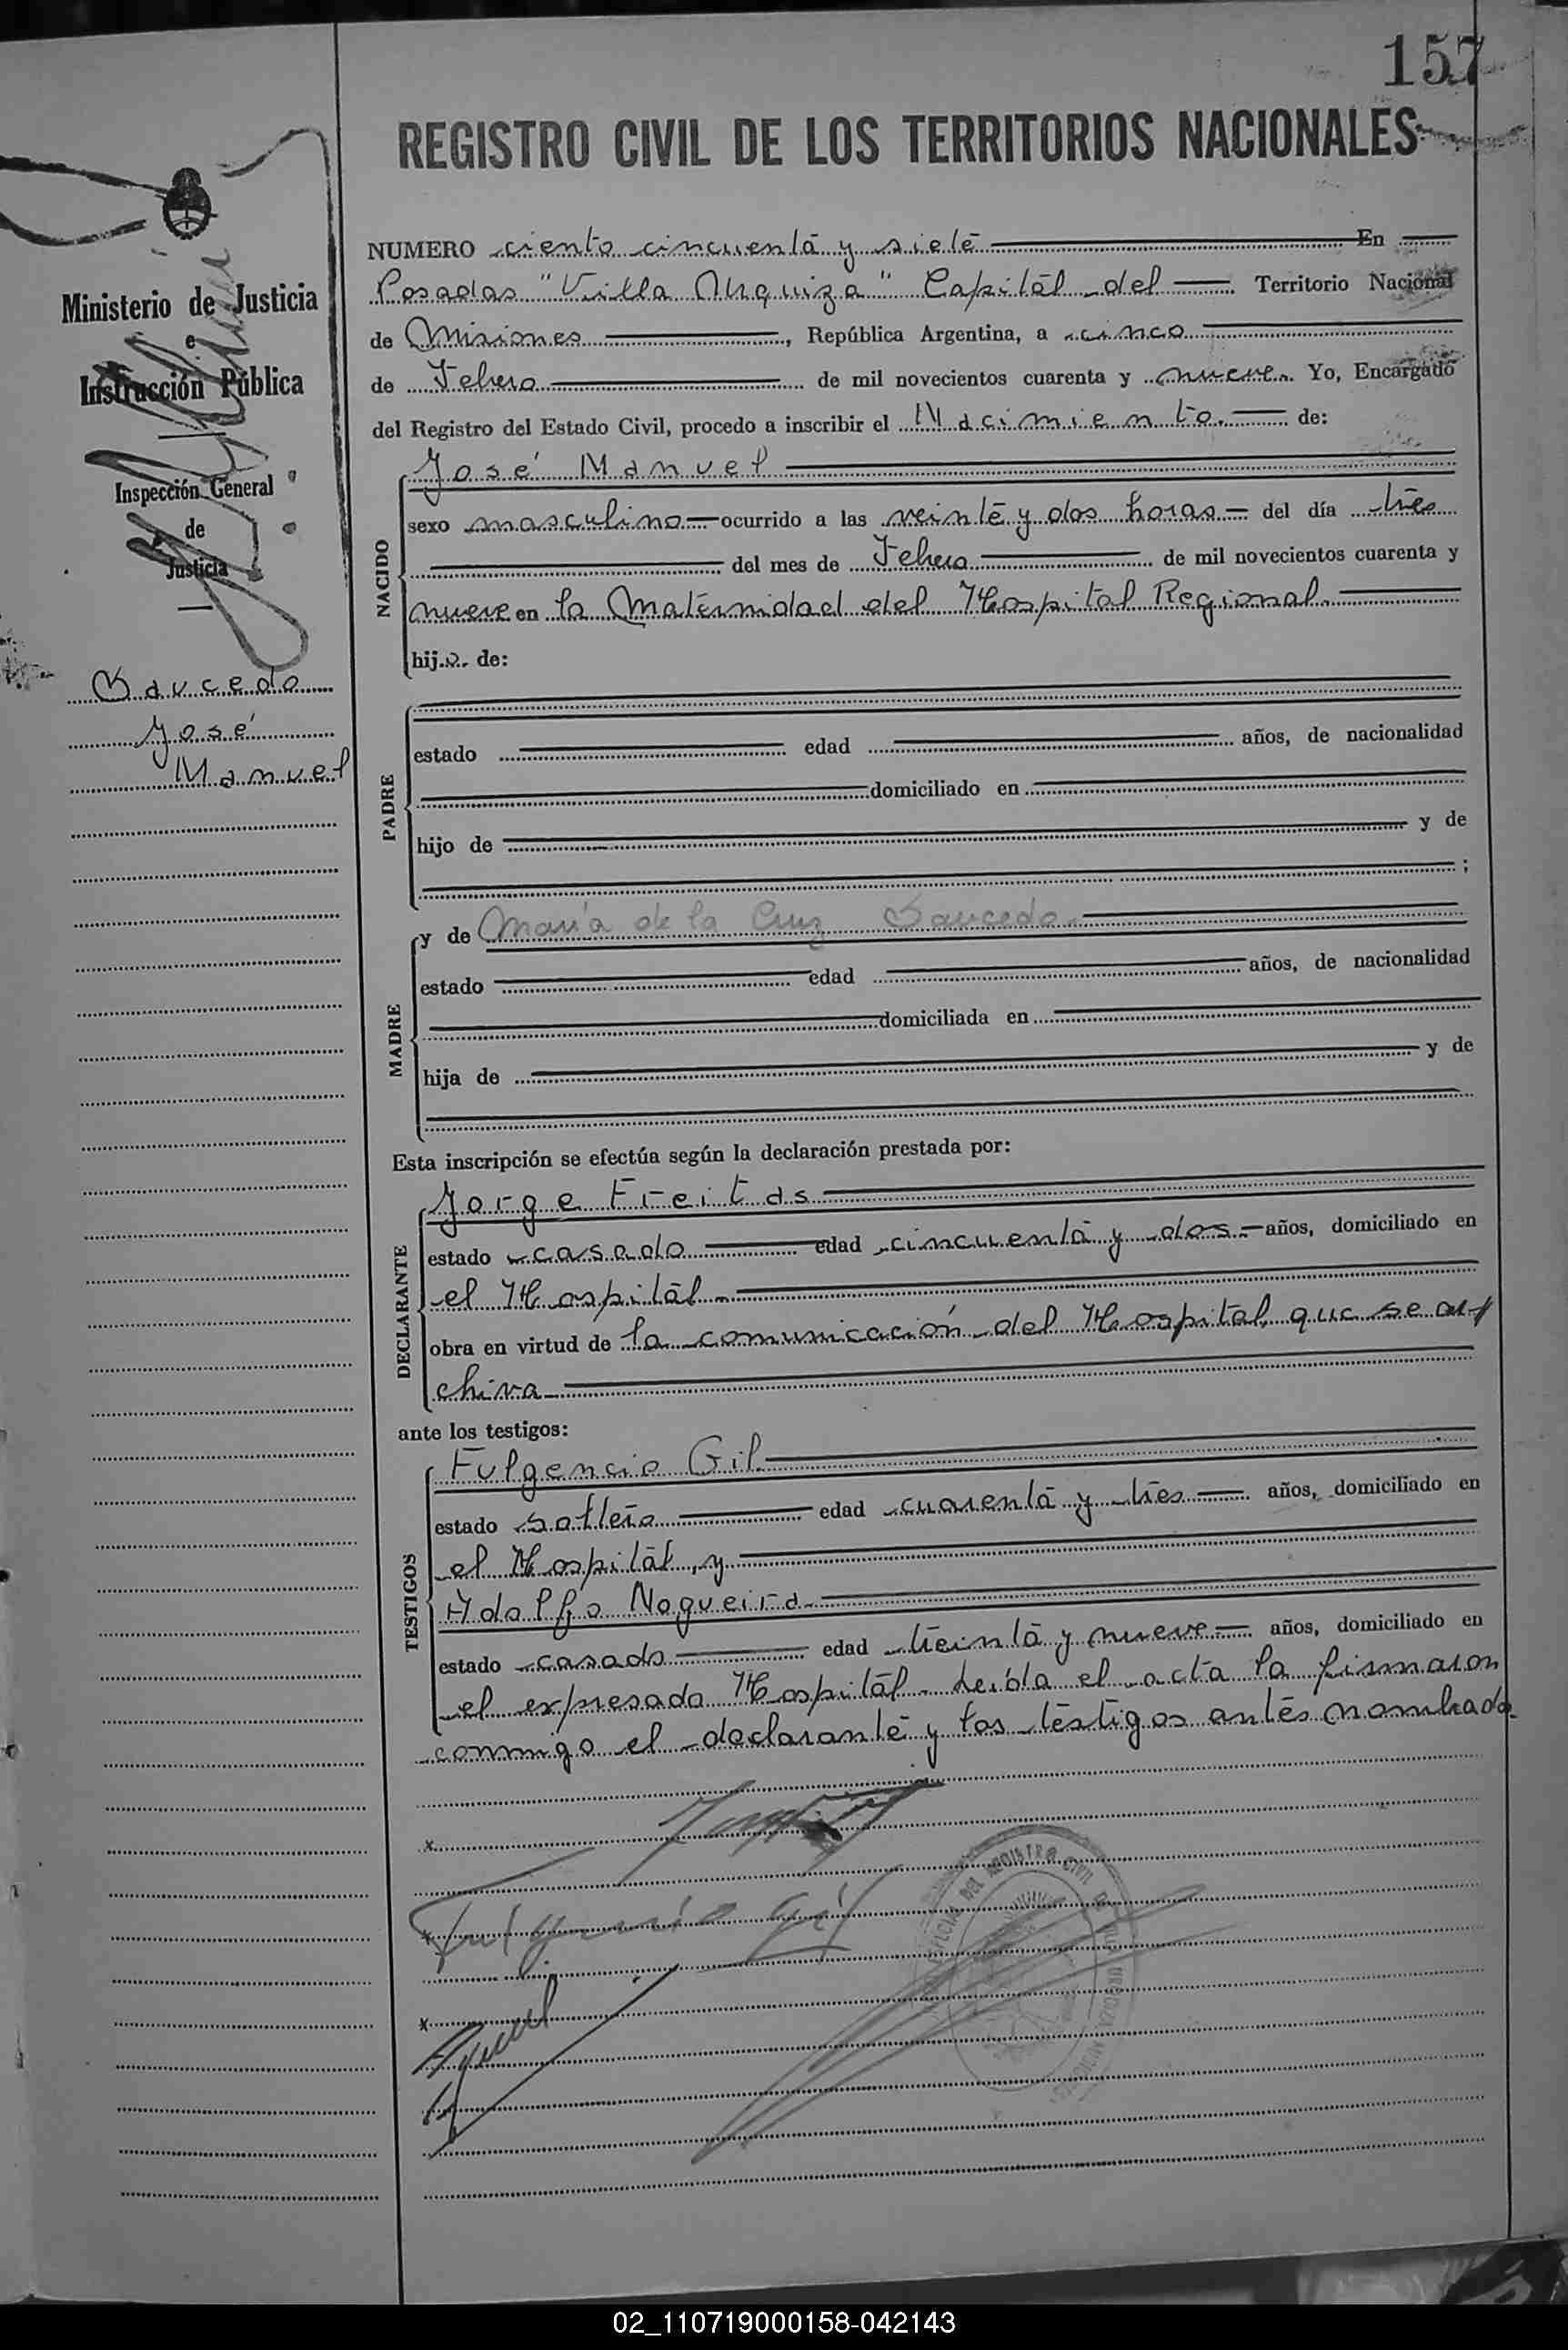 157
REGISTRO CIVIL DE LOS TERRITORIOS NACIONALES
NUMERO ciento cincuenta y siete En
Posadas "Villa Urquiza" Capital del Territorio Nacional
de Misiones, República Argentina, a cinco
de Febrero de mil novecientos cuarenta y nueve. Yo, Encargado
del Registro del Estado Civil, procedo a inscribir el Nacimiento. de:
Ministerio de Justicia
e
Instrucción Pública
Inspección General
de
Justicia
Saucedo
José
Manuel
NACIDO
José Manuel
sexo masculino ocurrido a las veinte y dos horas del día tres
del mes de Febrero de mil novecientos cuarenta y
nueve en la Maternidad del Hospital Regional.
hijo. de:
PADRE
estado edad años, de nacionalidad
domiciliado en
hijo de y de
;
MADRE
y de María de la Cruz Saucedo.
estado edad años, de nacionalidad
domiciliada en
hija de y de
Esta inscripción se efectúa según la declaración prestada por:
DECLARANTE
Jorge Freitas
estado casado edad cincuenta y dos. años, domiciliado en
el Hospital.
obra en virtud de la comunicación del Hospital que se ar
chiva
ante los testigos:
TESTIGOS
Fulgencio Gil
estado soltero edad cuarenta y tres años, domiciliado en
el Hospital, y
Adolfo Nogueira
estado casado edad treinta y nueve años, domiciliado en
el expresado Hospital. Leída el acta la firmaron
conmigo el declarante y los testigos antes nombrados.
x
x Fulgencio Gil
x
02_110719000158-042143